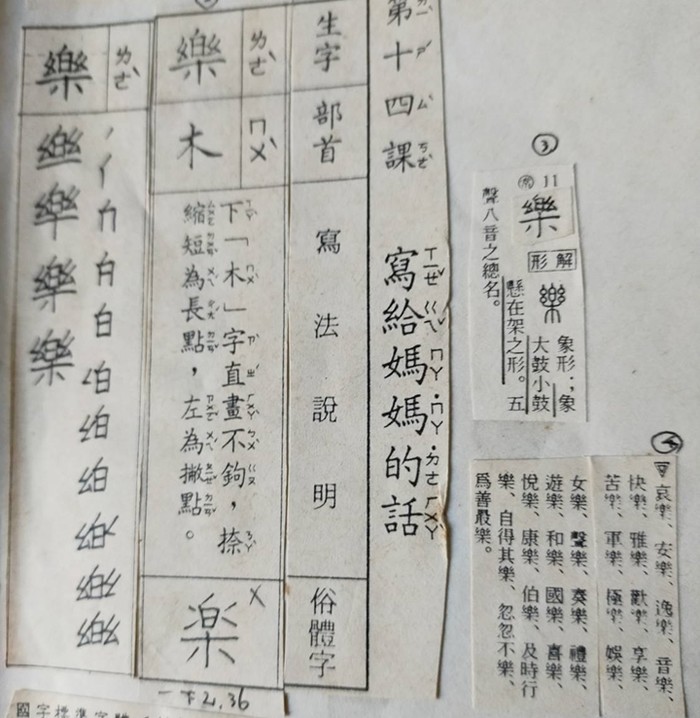 第十四課 寫給媽媽的話
ㄉㄧˋ ㄕˊ ㄙˋ ㄎㄜˋ ㄒㄧㄝˇ ㄍㄟˇ ㄇㄚ ˙ㄇㄚ ˙ㄉㄜ ㄏㄨㄚˋ
生字
部首
寫法說明
俗體字
樂 ㄌㄜˋ
木 ㄇㄨˋ
下「木」字直畫不鉤,捺
縮短為長點,左為撇點。
楽 ×
一下2.36
樂 ㄌㄜˋ
國字標準字體
③
11
樂
形解
樂
象形;象
大鼓小鼓
懸在架之形。五
聲八音之總名。
④
▽哀樂、安樂、逸樂、音樂、
快樂、雅樂、歡樂、享樂、
苦樂、軍樂、極樂、娛樂、
女樂、聲樂、奏樂、禮樂、
遊樂、和樂、國樂、喜樂、
悅樂、康樂、伯樂、及時行
樂、自得其樂、忽忽不樂、
爲善最樂。